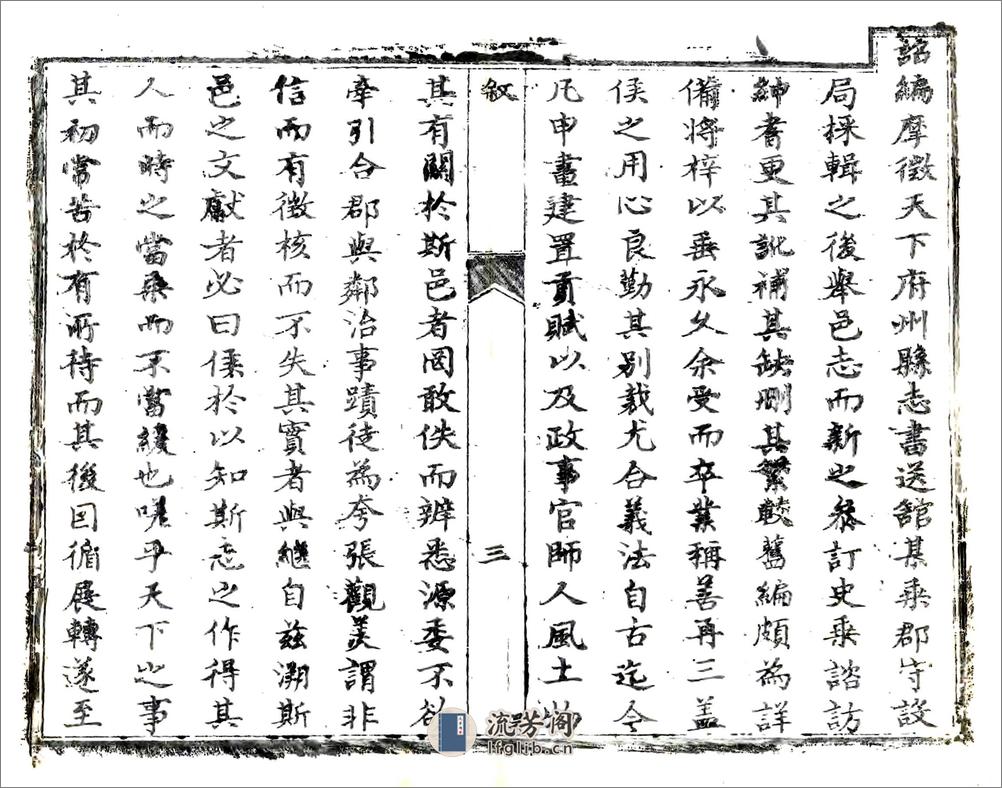 詔編摩徵天下府州縣志書送舘其乘郡守設
局採輯之後舉邑志而新之叅訂史乘諮訪
紳耆更其訛補其缺刪其繁較舊編頗為詳
備將梓以垂永久余受而卒業稱善再三盖
侯之用心良勤其別裁尤合義法自古迄今
凡申畫建置貢賦以及政事官師人風土物
敘
三
其有關於斯邑者罔敢佚而辨悉源委不欲
牽引合郡與鄰治事蹟徒為夸張觀美謂非
信而有徵核而不失其實者與繼自兹溯斯
邑之文獻者必曰侯於以知斯志之作得其
人而時之當亟而不當緩也嗟乎天下之事
其初常苦於有所待而其後因循展轉遂至
流芳阁
lfglib.cn